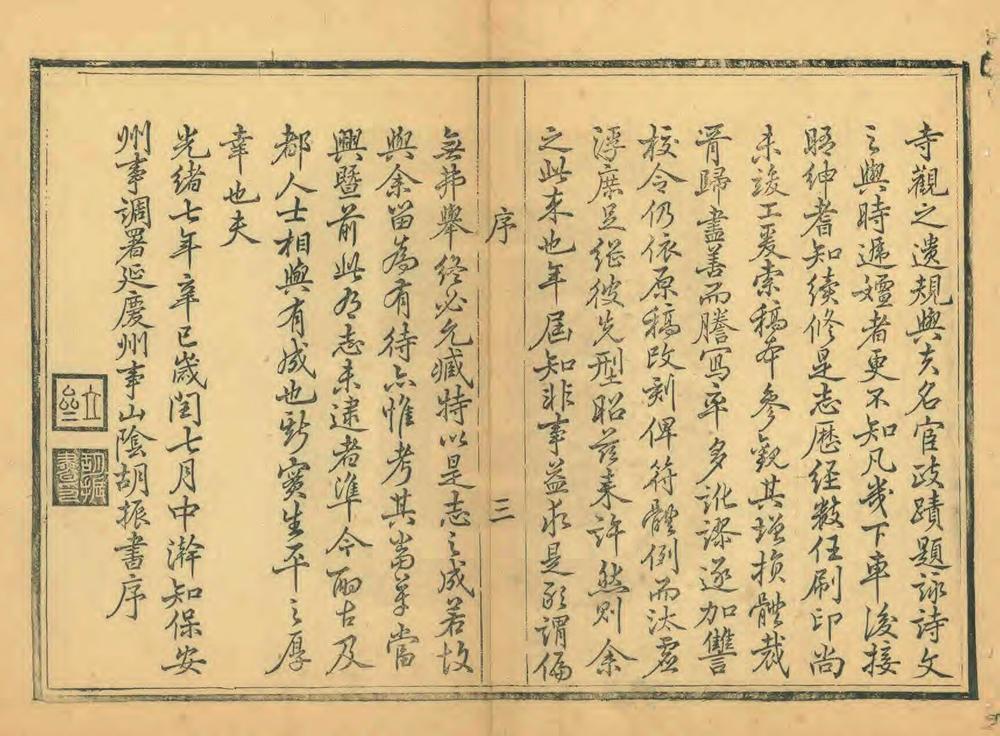 寺觀之遺規與夫名宦政蹟題詠詩文
之與時遞嬗者更不知凡幾下車後接
晤紳耆知續修是志歷經數任刷印尚
未竣工爰索稿本參觀其增損體裁
胥歸盡善而謄寫率多訛謬逐加讐
校令仍依原稿改刻俾符體例而汰虛
浮庶足繼彼先型昭茲来許然則余
之此来也年屆知非事益求是所謂偏
序
三
無弗舉終必允臧特以是志之成若故
與余留為有待亦惟考其當革當
興暨前此有志未逮者準今酌古及
都人士相與有成也斯實生平之厚
幸也夫
光緒七年辛巳歲閏七月中澣知保安
州事調署延慶州事山陰胡振書序
胡振書印